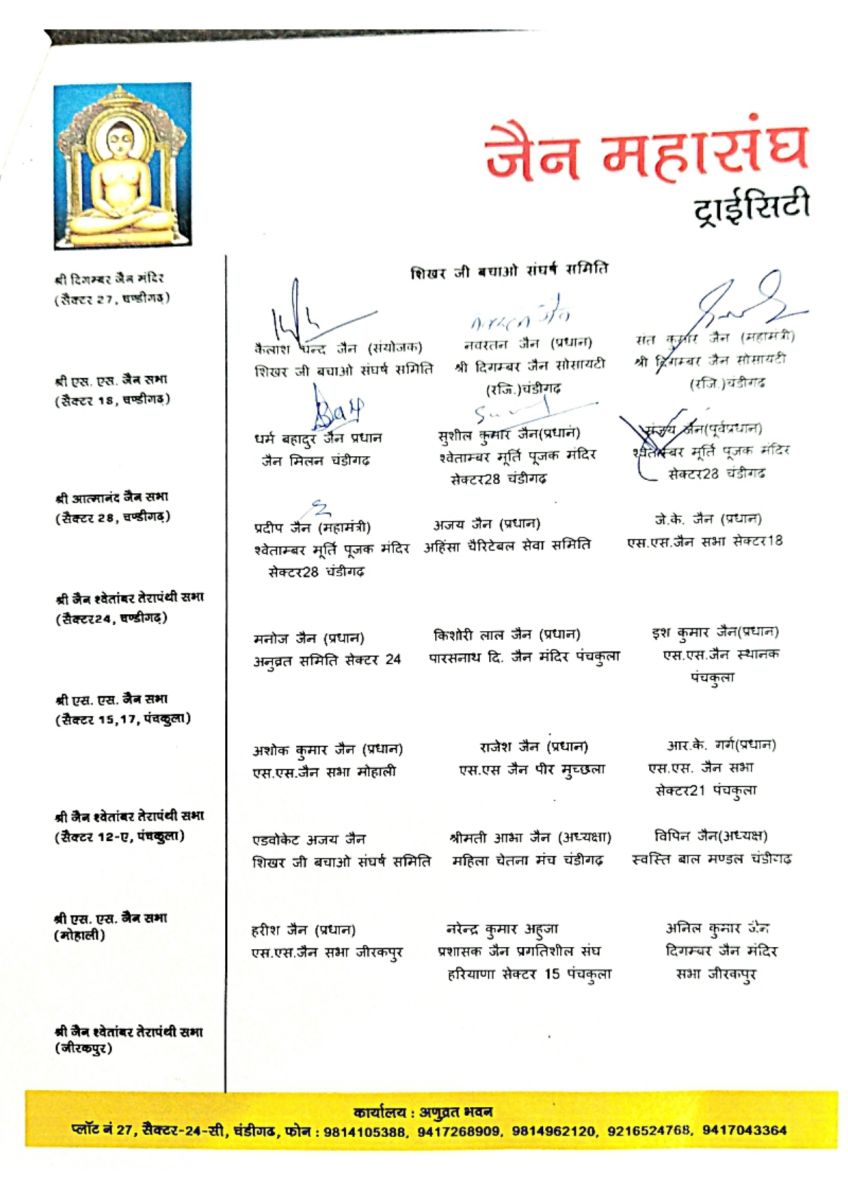 जैन महासंघ
ट्राईसिटी
श्री दिगम्बर जैन मंदिर
(सैक्टर 27, चण्डीगढ़)
श्री एस. एस. जैन सभा
(सैक्टर 18, चण्डीगढ़)
श्री आत्मानंद जैन सभा
(सैक्टर 28, चण्डीगढ़)
श्री जैन श्वेतांबर तेरापंथी सभा
(सैक्टर24, चण्डीगढ़)
श्री एस. एस. जैन सभा
(सैक्टर 15,17, पंचकुला)
श्री जैन श्वेतांबर तेरापंथी सभा
(सैक्टर 12-ए, पंचकुला)
श्री एस. एस. जैन सभा
(मोहाली)
श्री जैन श्वेतांबर तेरापंथी सभा
(जीरकपुर)
शिखर जी बचाओ संघर्ष समिति
कैलाश चन्द जैन (संयोजक)
शिखर जी बचाओ संघर्ष समिति
नवरतन जैन (प्रधान)
श्री दिगम्बर जैन सोसायटी
(रजि.)चंडीगढ़
संत कुमार जैन (महामंत्री)
श्री दिगम्बर जैन सोसायटी
(रजि.)चंडीगढ़
धर्म बहादुर जैन प्रधान
जैन मिलन चंडीगढ़
सुशील कुमार जैन(प्रधान)
श्वेताम्बर मूर्ति पूजक मंदिर
सेक्टर28 चंडीगढ़
संजय जैन(पूर्वप्रधान)
श्वेताम्बर मूर्ति पूजक मंदिर
सेक्टर28 चंडीगढ़
प्रदीप जैन (महामंत्री)
श्वेताम्बर मूर्ति पूजक मंदिर
सेक्टर28 चंडीगढ़
अजय जैन (प्रधान)
अहिंसा चैरिटेबल सेवा समिति
जे.के. जैन (प्रधान)
एस.एस.जैन सभा सेक्टर18
मनोज जैन (प्रधान)
अनुव्रत समिति सेक्टर 24
किशोरी लाल जैन (प्रधान)
पारसनाथ दि. जैन मंदिर पंचकुला
इश कुमार जैन(प्रधान)
एस.एस.जैन स्थानक
पंचकुला
अशोक कुमार जैन (प्रधान)
एस.एस.जैन सभा मोहाली
राजेश जैन (प्रधान)
एस.एस जैन पीर मुच्छला
आर.के. गर्ग(प्रधान)
एस.एस. जैन सभा
सेक्टर21 पंचकुला
एडवोकेट अजय जैन
शिखर जी बचाओ संघर्ष समिति
श्रीमती आभा जैन (अध्यक्षा)
महिला चेतना मंच चंडीगढ़
विपिन जैन(अध्यक्ष)
स्वस्ति बाल मण्डल चंडीगढ़
हरीश जैन (प्रधान)
एस.एस.जैन सभा जीरकपुर
नरेन्द्र कुमार अहुजा
प्रशासक जैन प्रगतिशील संघ
हरियाणा सेक्टर 15 पंचकुला
अनिल कुमार जैन
दिगम्बर जैन मंदिर
सभा जीरकपुर
कार्यालय : अणुव्रत भवन
प्लॉट नं 27, सैक्टर-24-सी, चंडीगढ, फोन : 9814105388, 9417268909, 9814962120, 9216524768, 9417043364